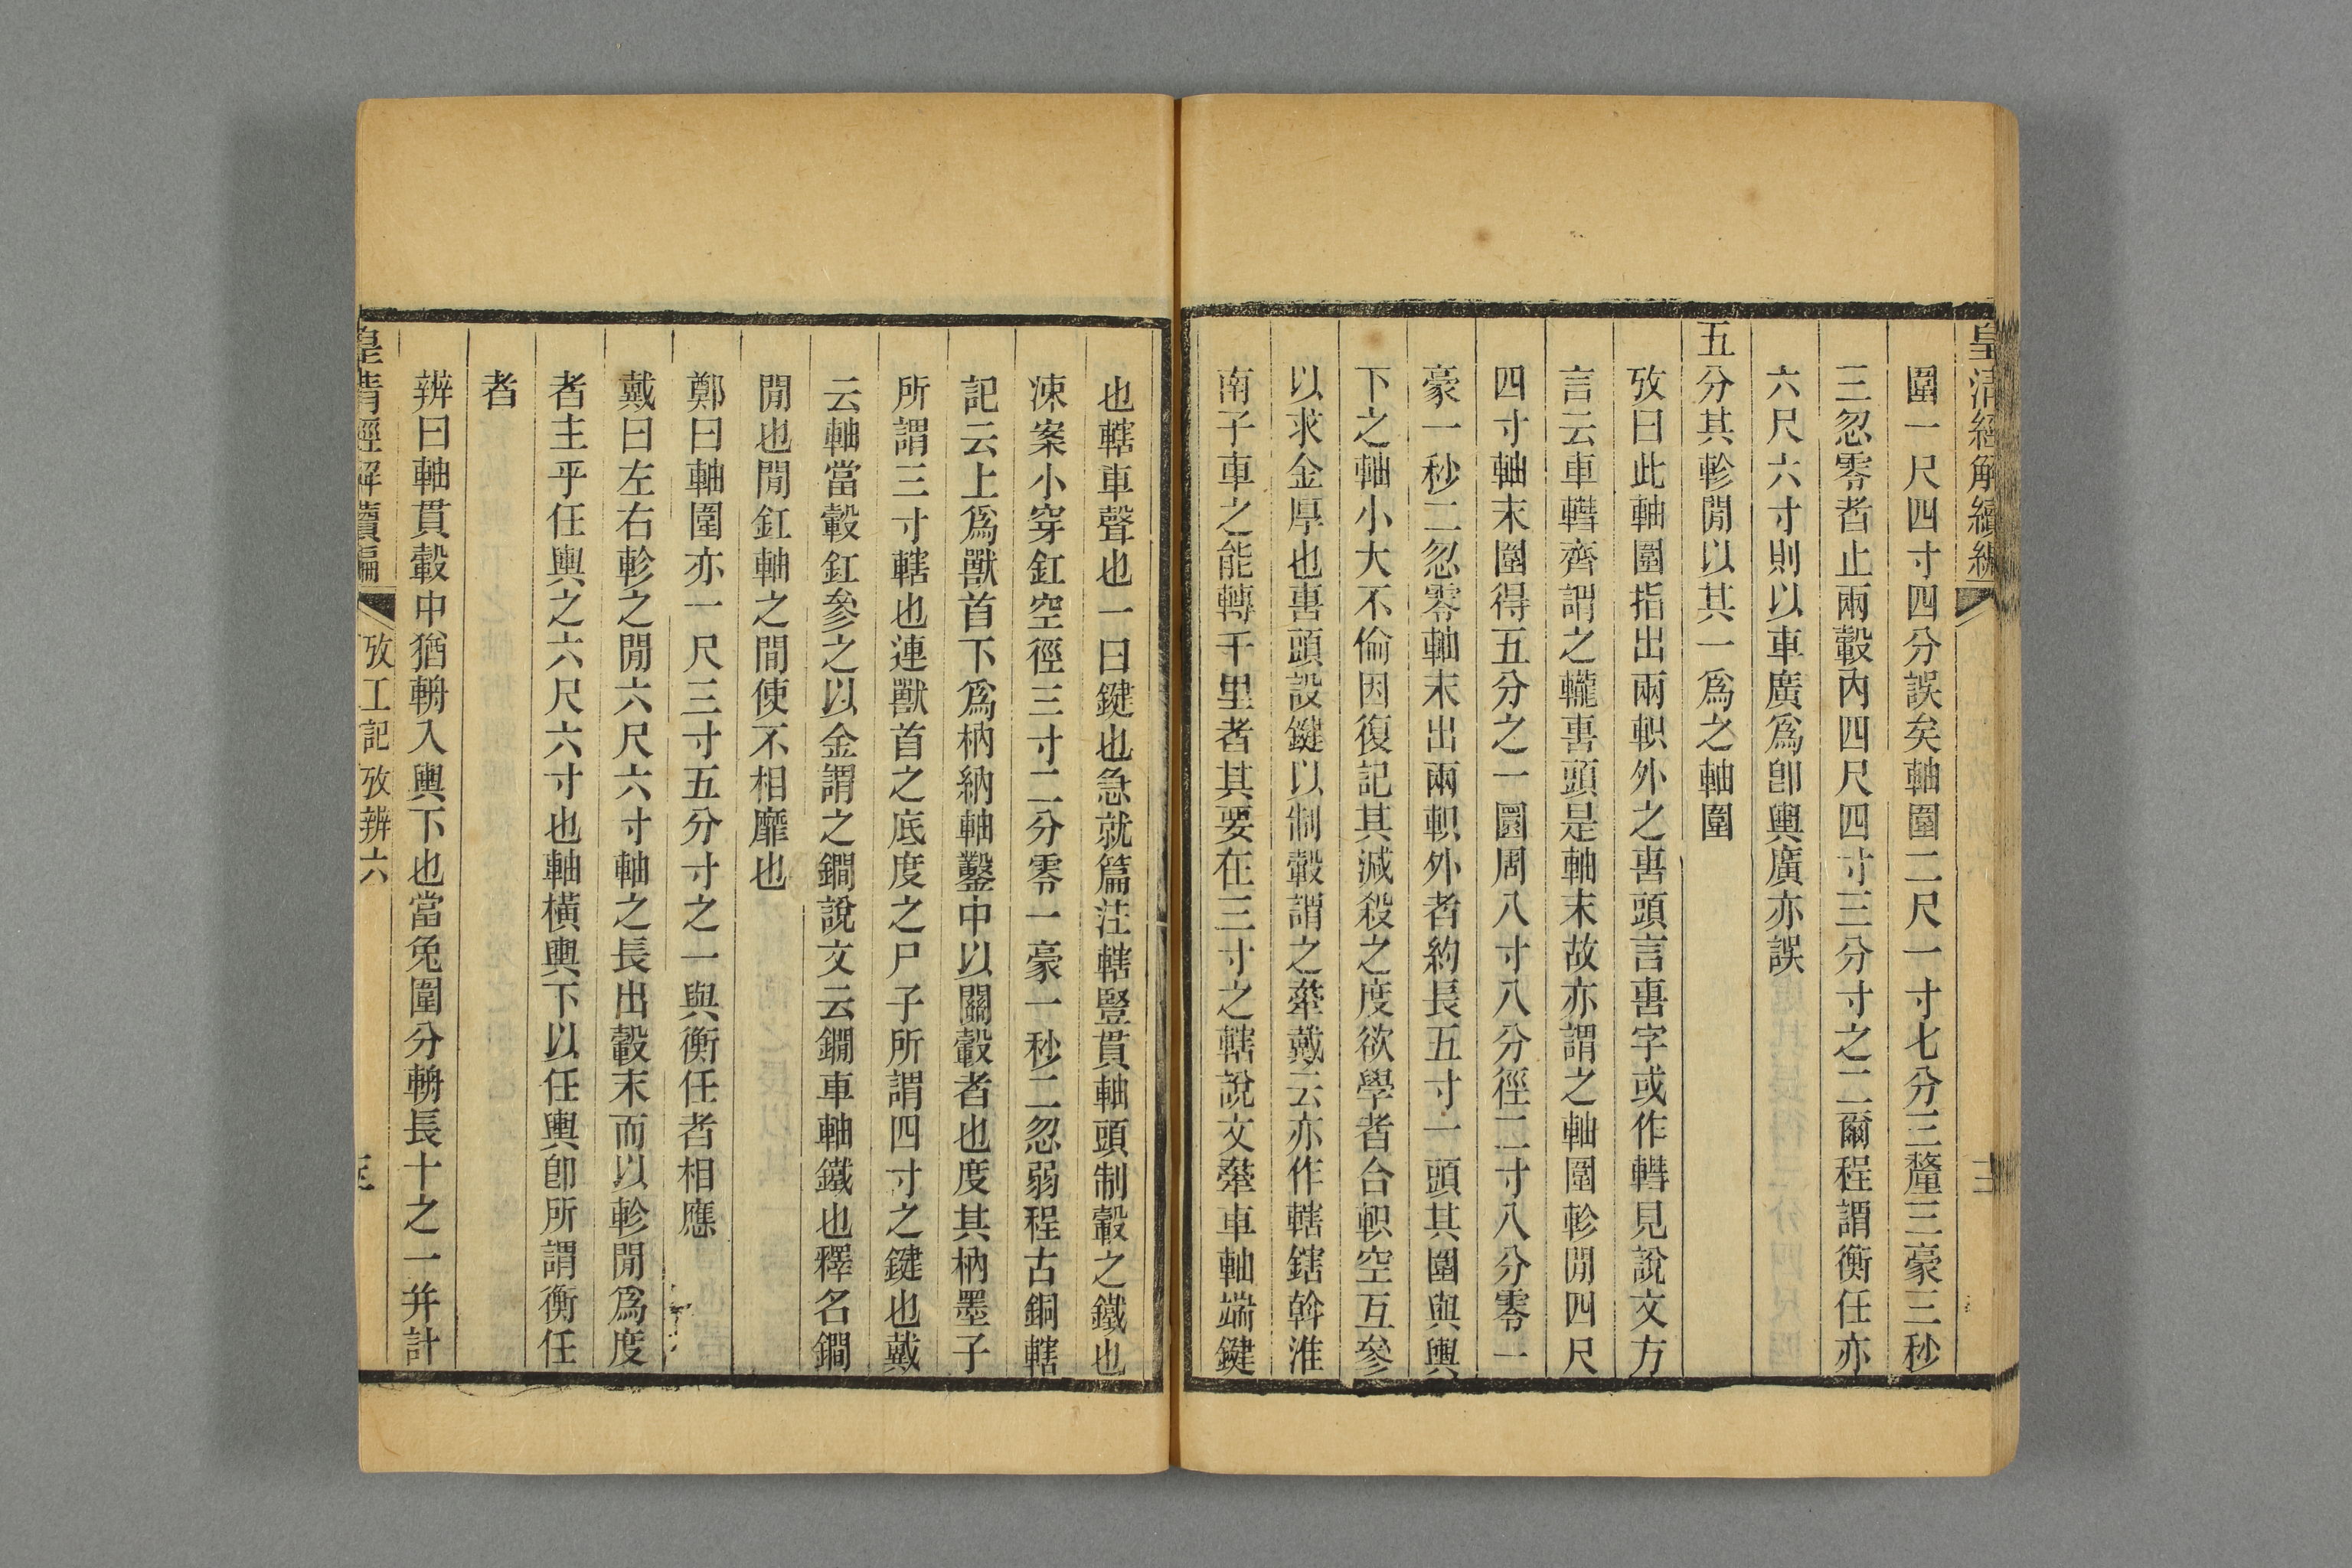 皇清經解續編
圍一尺四寸四分誤矣軸圍二尺一寸七分三釐三豪三秒
三忽零者止兩轂內四尺四寸三分寸之二爾程謂衡任亦
六尺六寸則以車廣爲卽輿廣亦誤
五分其軫閒以其一爲之軸圍
攷曰此軸圍指出兩軹外之軎頭言軎字或作轊見說文方
言云車轊齊謂之轆軎頭是軸末故亦謂之軸圍軫閒四尺
四寸軸末圍得五分之一圜周八寸八分徑二寸八分零一
豪一秒二忽零軸末出兩軹外者約長五寸一頭其圍與輿
下之軸小大不倫因復記其減殺之度欲學者合軹空互參
以求金厚也軎頭設鍵以制轂謂之舝戴云亦作轄鎋斡淮
南子車之能轉千里者其要在三寸之轄說文舝車軸端鍵
也轄車聲也一曰鍵也急就篇注轄豎貫軸頭制轂之鐵也
涷案小穿釭空徑三寸二分零一豪一秒二忽弱程古銅轄
記云上爲獸首下爲枘納軸鑿中以關轂者也度其枘墨子
所謂三寸轄也連獸首之底度之尸子所謂四寸之鍵也戴
云軸當轂釭參之以金謂之鐗說文云鐗車軸鐵也釋名鐗
閒也閒釭軸之間使不相靡也
鄭曰軸圍亦一尺三寸五分寸之一與衡任者相應
戴曰左右軫之閒六尺六寸軸之長出轂末而以軫閒爲度
者主乎任輿之六尺六寸也軸橫輿下以任輿卽所謂衡任
者
辨曰軸貫轂中猶輈入輿下也當兔圍分輈長十之一幷計
皇清經解續編
攷工記攷辨六